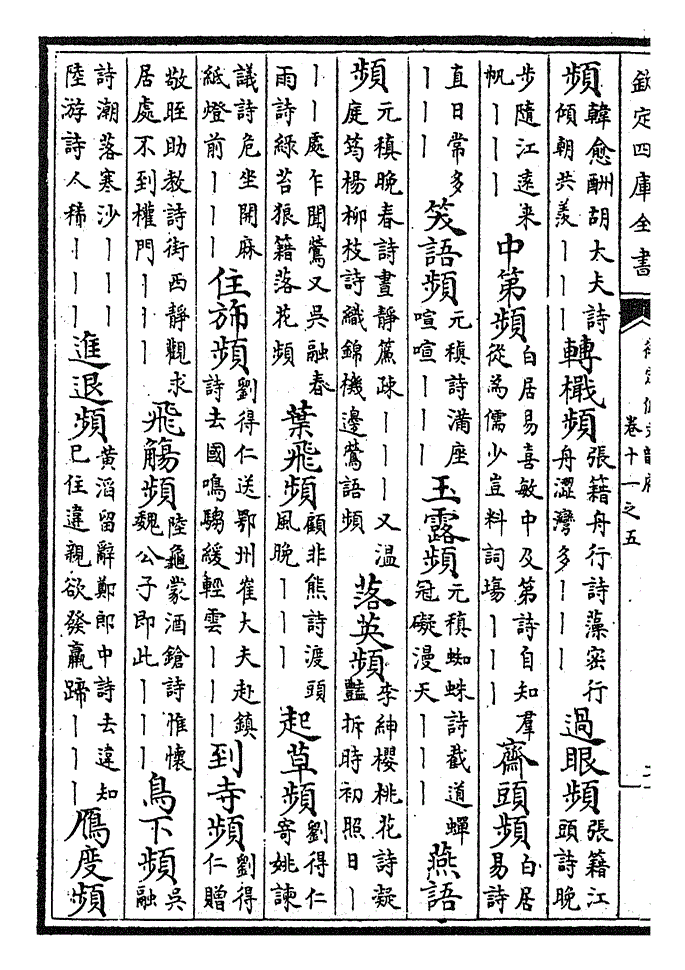 欽定四庫全書
御定佩文韻府 卷十一之五
頻 韓愈酬胡太夫詩傾朝共羨｜｜｜ 轉檝頻 張籍舟行詩藻密行舟澀灣多｜｜｜ 過眼頻 張籍江頭詩晚
步隨江遠來帆｜｜｜ 中第頻 白居易喜敏中及第詩自知羣從為儒少豈料詞塲｜｜｜ 齊頭頻 白居易詩
直日常多｜｜｜ 笑語頻 元稹詩滿座喧喧｜｜｜ 玉露頻 元稹蜘蛛詩截道蟬冠礙漫天｜｜｜ 燕語
頻 元稹晚春詩晝靜簾疎｜｜｜又溫庭筠楊柳枝詩織錦機邊鶯語頻 落英頻 李紳櫻桃花詩凝豔拆時初照日｜
｜｜處乍聞鶯又吳融春雨詩綠苔狼籍落花頻 葉飛頻 顧非熊詩渡頭風晚｜｜｜ 起草頻 劉得仁寄姚諫
議詩危坐開麻紙燈前｜｜｜ 住斾頻 劉得仁送鄂州崔大夫赴鎮詩去國鳴騶緩輕雲｜｜｜ 到寺頻 劉得仁贈
敬晊助教詩街西靜觀求居處不到權門｜｜｜ 飛觴頻 陸龜蒙酒鎗詩惟懷魏公子即此｜｜｜ 鳥下頻 吳融
詩潮落寒沙｜｜｜陸游詩人稀｜｜｜ 進退頻 黃滔留辭鄭郎中詩去違知己住違親欲發羸蹄｜｜｜ 鴈度頻